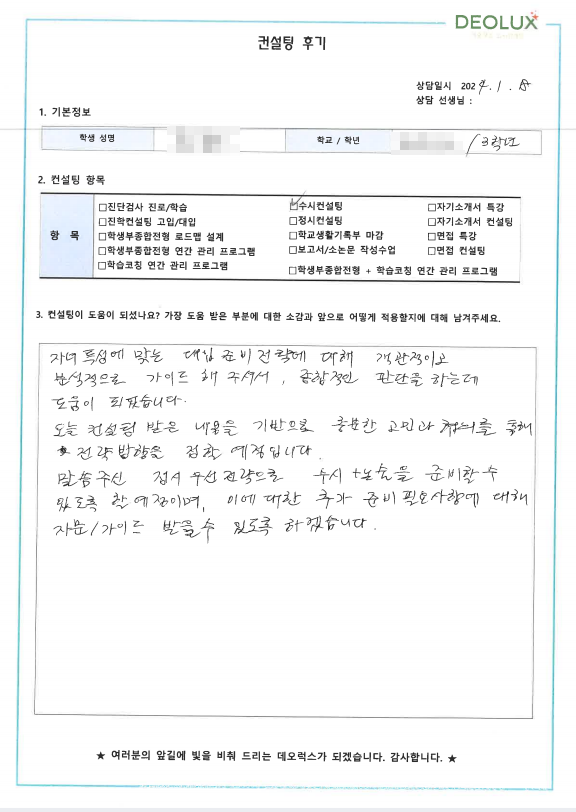 DEOLUX
컨설팅 후기
상담일시 2024.1.
상담 선생님 :
1. 기본정보
학생 성명 학교 / 학년 /3학년
2. 컨설팅 항목
항 목
□진단검사 진로/학습 □수시컨설팅 □자기소개서 특강
□진학컨설팅 고입/대입 □정시컨설팅 □자기소개서 컨설팅
□학생부종합전형 로드맵 설계 □학교생활기록부 마감 □면접 특강
□학생부종합전형 연간 관리 프로그램 □보고서/소논문 작성수업 □면접 컨설팅
□학습코칭 연간 관리 프로그램 □학생부종합전형 + 학습코칭 연간 관리 프로그램
3. 컨설팅이 도움이 되셨나요? 가장 도움 받은 부분에 대한 소감과 앞으로 어떻게 적용할지에 대해 남겨주세요.
자녀 특성에 맞는 대입 준비 전략에 대해 객관적이고
분석적으로 가이드 해 주셔서, 종합적인 판단을 하는데
도움이 되었습니다.
오늘 컨설팅 받은 내용을 기반으로 충분한 고민과 협의를 통해
전략 방향을 정할 예정입니다.
말씀주신 정시 우선 전략으로 수시 + 논술을 준비할 수
있도록 할 예정이며, 이에 대한 추가 준비 필요사항에 대해
자문/가이드 받을 수 있도록 하겠습니다.
★ 여러분의 앞길에 빛을 비춰 드리는 데오럭스가 되겠습니다. 감사합니다. ★